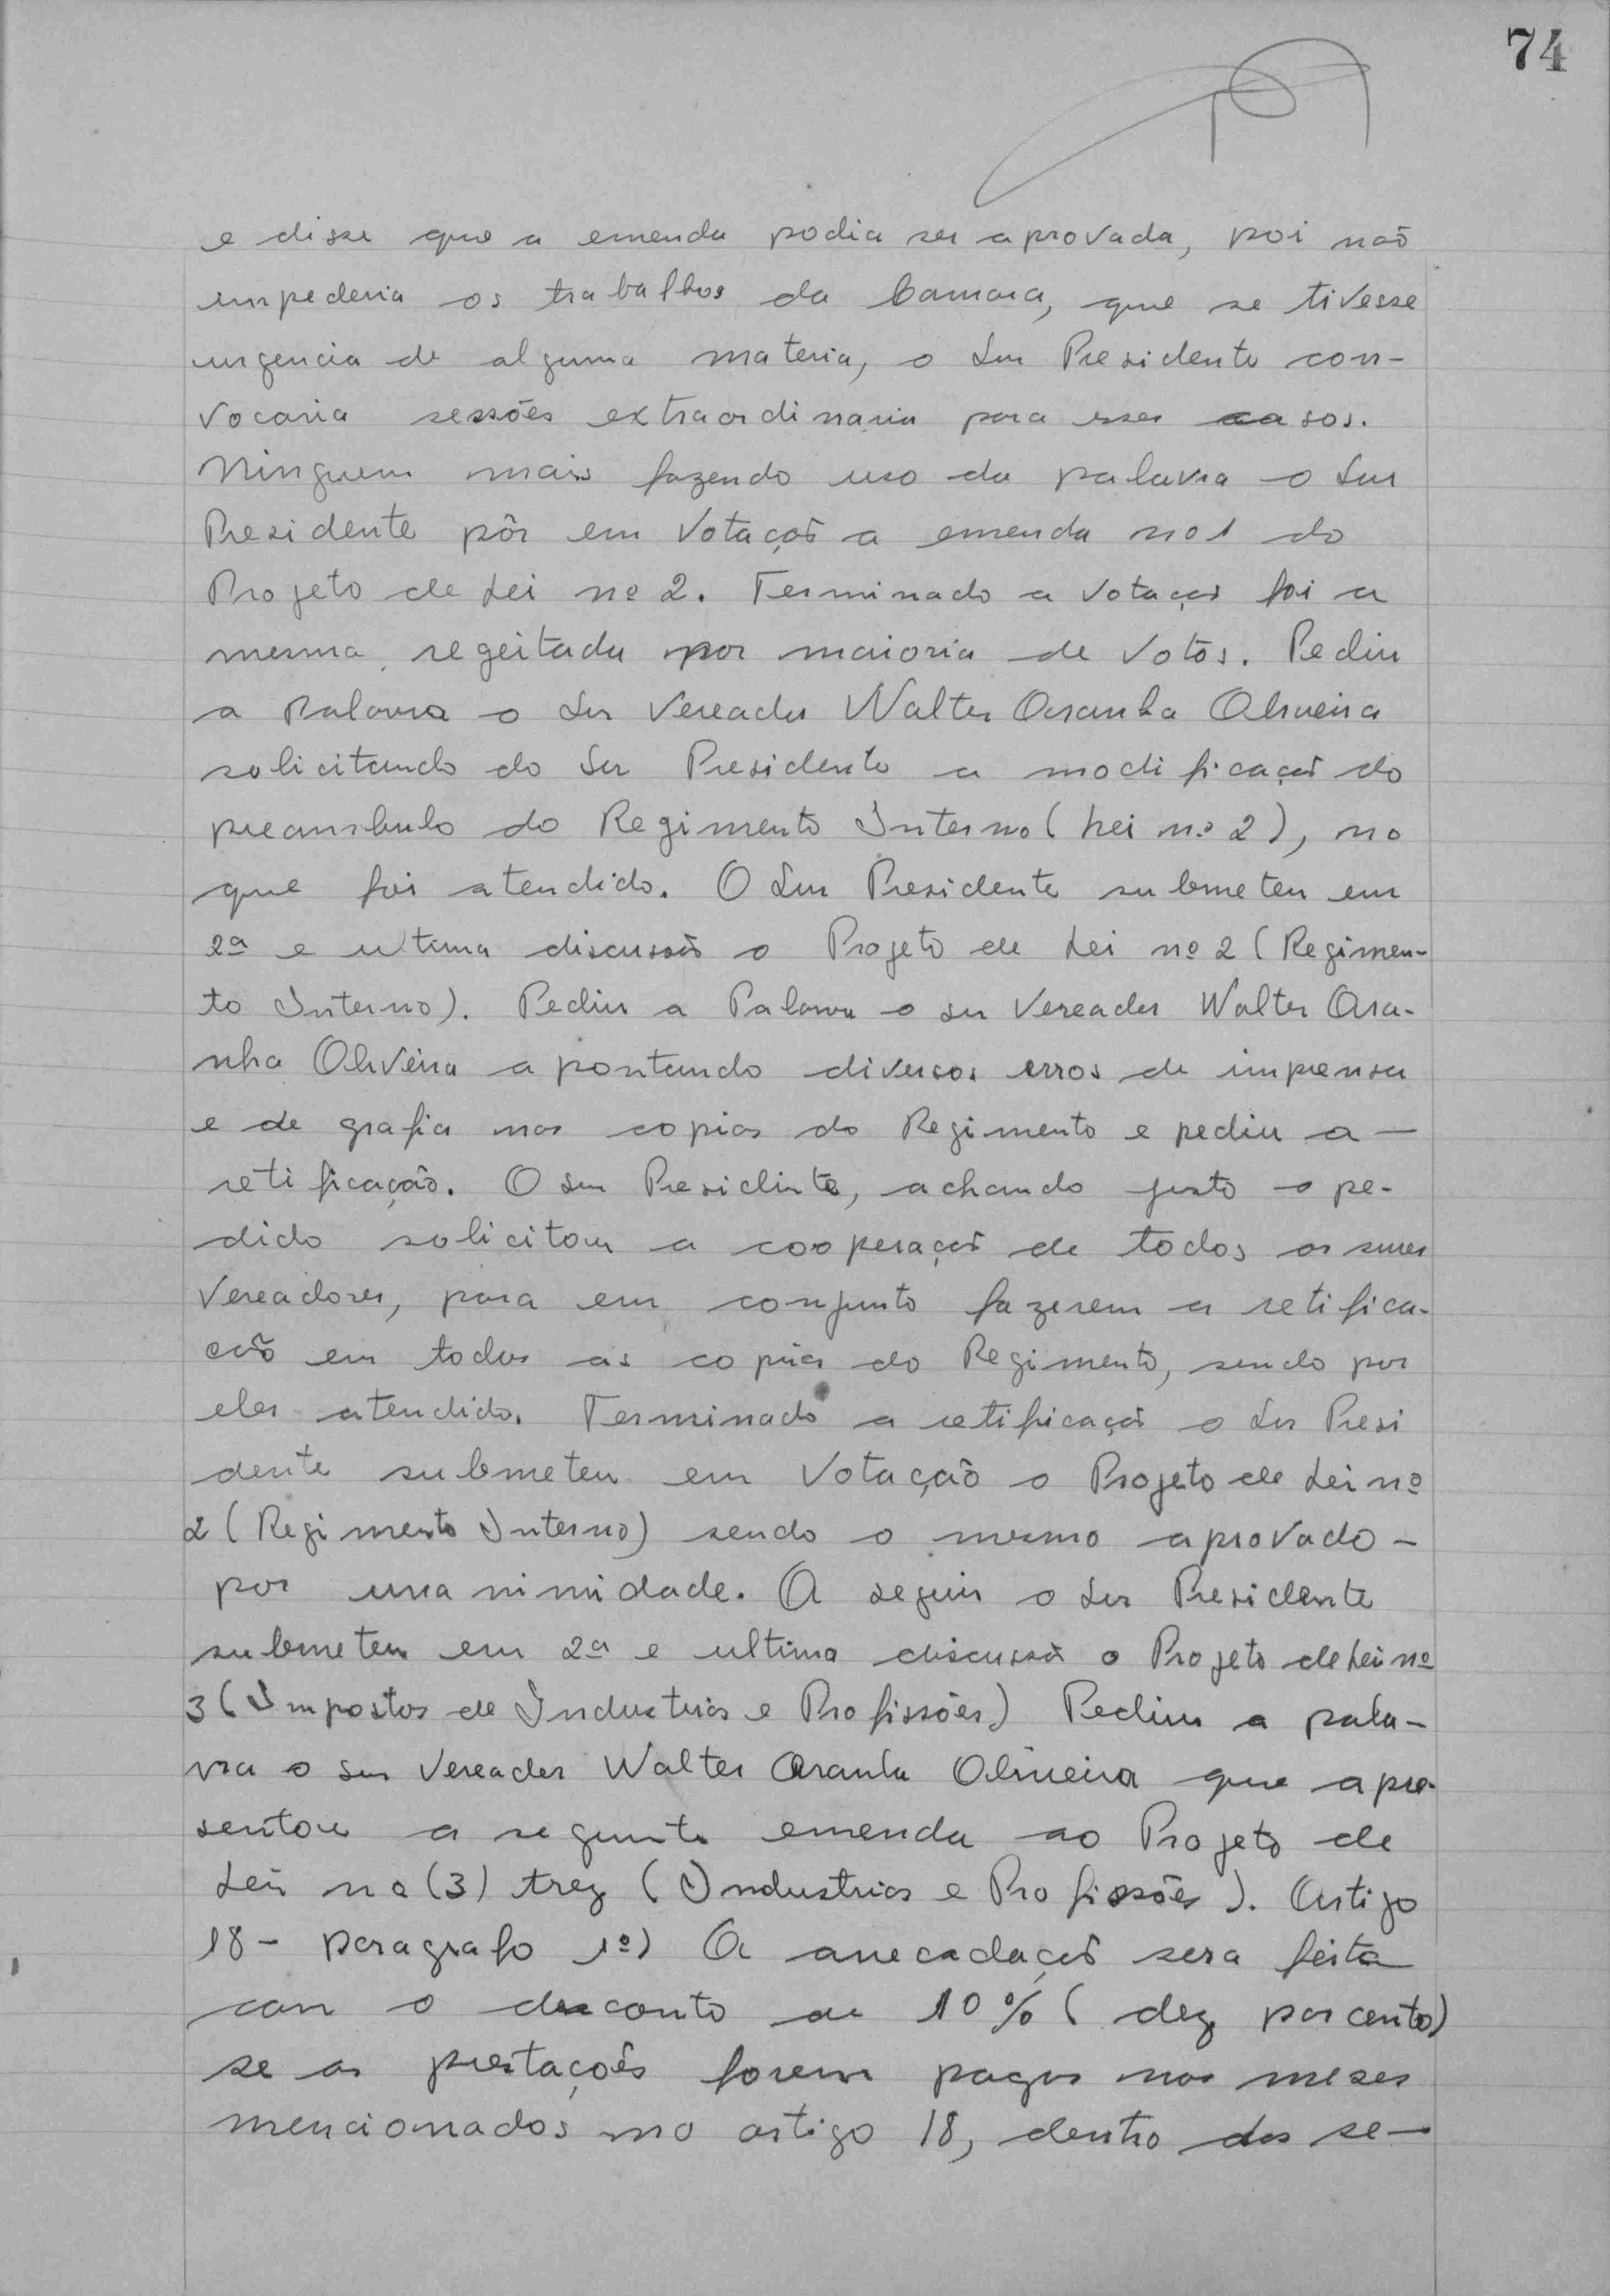 74
e disse que a emenda podia ser aprovada, poi não
impederia os trabalhos da Camara, que se tivesse
urgencia de alguma materia, o Snr Presidente con-
vocaria sessões extraordinaria para esses casos.
Ninguem mais fazendo uso da palavra o Snr
Presidente pôr em votação a emenda no 1 do
Projeto de Lei nº 2. Terminado a votação foi a
mesma regeitada por maioria de votos. Pediu
a palavra o Snr Vereador Walter Aranha Oliveira
solicitando do Snr Presidente a modificação do
preambulo do Regimento Interno (Lei nº 2), no
que foi atendido. O Snr Presidente submeteu em
2ª e ultima discussão o Projeto de Lei nº 2 (Regimen-
to Interno). Pediu a Palavra o snr Vereador Walter Ara-
nha Oliveira apontando diversos erros de imprensa
e de grafia nas copias do Regimento e pediu a -
retificação. O Snr Presidente, achando justo o pe-
dido solicitou a cooperação de todos os snres
Vereadores, para em conjunto fazerem a retifica-
ção em todas as copias do Regimento, sendo por
eles atendido. Terminado a retificação o Snr Presi
dente submeteu em votação o Projeto de Lei nº
2 (Regimento Interno) sendo o mesmo aprovado -
por unanimidade. A seguir o Snr Presidente
submeteu em 2ª e ultima discussão o Projeto de Lei nº
3 (Impostos de Industrias e Profissões) Pediu a pala-
vra o snr Vereador Walter Aranha Oliveira que apre-
sentou a seguinte emenda ao Projeto de
Lei no (3) trez (Industrias e Profissões). Artigo
18 - paragrafo 1º) A arrecadação sera feita
com o desconto de 10% (dez por cento)
se as prestações forem pagas nos meses
mencionados no artigo 18, dentro dos se-